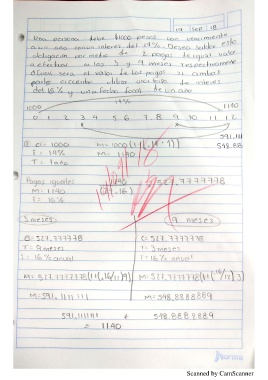 19 Sep 18
Una persona debe $1000 pesos con vencimiento
a un año con un interés del 14%. Desea saldar esta
obligación por medio de 2 pagos de igual valor
a efectuar a los 3 y 9 meses respectivamente
valor de los pagos si ambas
partes acuerdan utilizar una tasa de interés
del 16% y una fecha focal de un año
14%
1000 1140
0 1 2 3 4 5 6 7 8 9 10 11 12
591.111
548.88
C = 1000 M = 1000 (1 + (.14 · 1))
i = 14% M = 1140
T = 1 año
Pagos iguales 1140 527.7777778
M = 1140
I = 16%
3 meses 9 meses
C = 527.777778 C = 527.777778
T = 9 meses T = 3 meses
I = 16% anual I = 16% anual
M = 527.7777778 (1 + (.16/12) 9) M = 527.7777778 (1 + (.16/12) 3)
M = 591.1111111 M = 548.8888889
591.111111 + 548.8888889
= 1140
Norma
Scanned by CamScanner